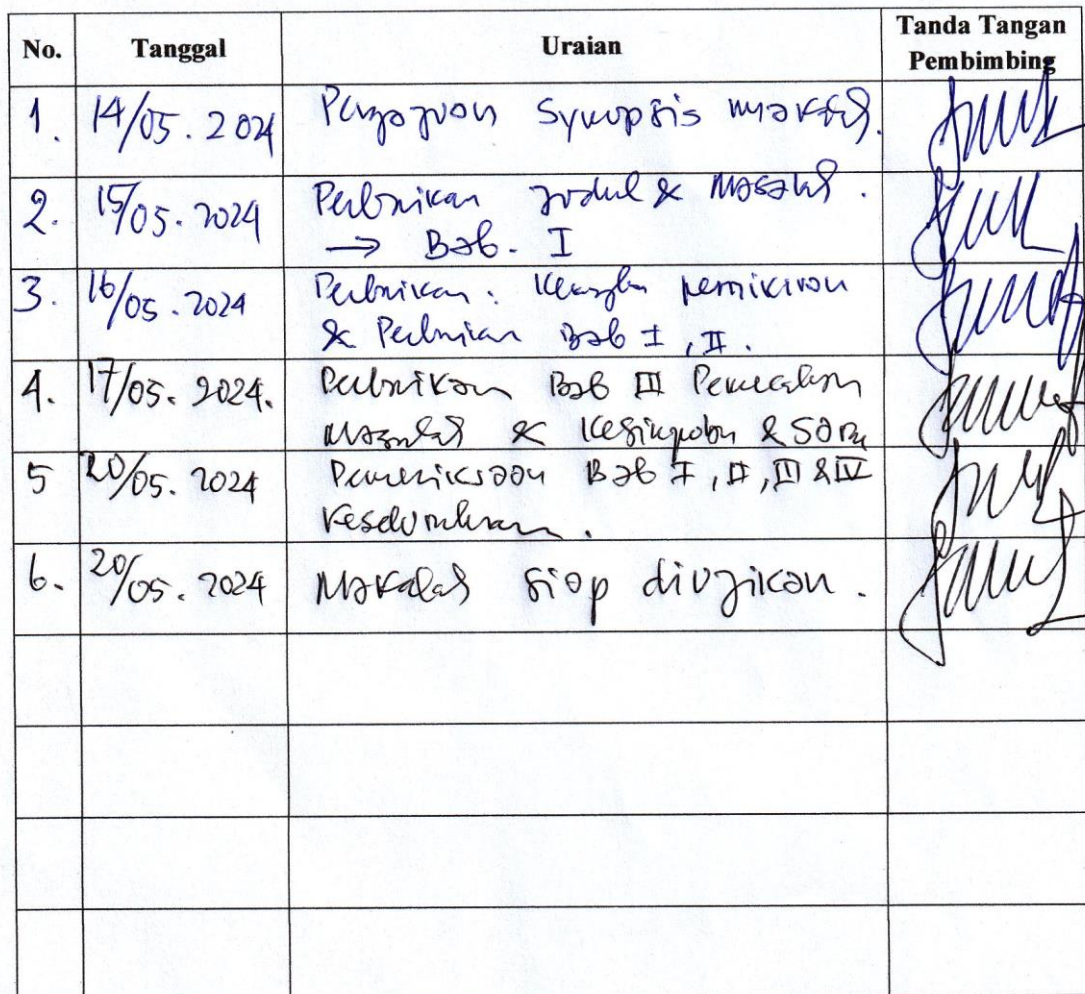 No. Tanggal Uraian Tanda Tangan
Pembimbing
1. 14/05. 2024 Pengajuan Synopsis makalah.
2. 15/05. 2024 Perbaikan judul & Masalah.
→ Bab. I
3. 16/05. 2024 Perbaikan. Kerangka pemikiran
& Perbaikan Bab I, II.
4. 17/05. 2024. Perbaikan Bab III Pemecahan
Masalah & Kesimpulan & Saran
5 20/05. 2024 Pemeriksaan Bab I, II, III & IV
Keseluruhan.
6. 20/05. 2024 Makalah siap diujikan.